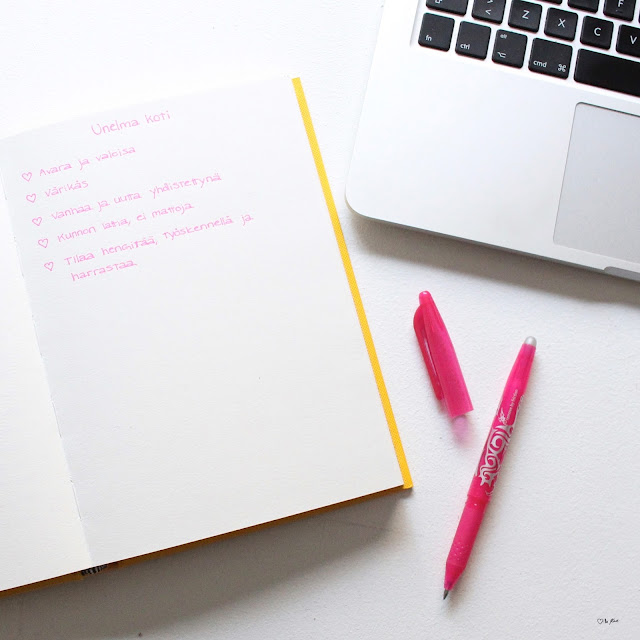 Unelma koti
♡ Avara ja valoisa
♡ Värikäs
♡ Vanhaa ja uutta yhdistettynä
♡ Kunnon lattia, ei mattoja
♡ Tilaa hengittää, työskennellä ja
harrastaa.
Z X C V B
fn control alt option cmd ⌘